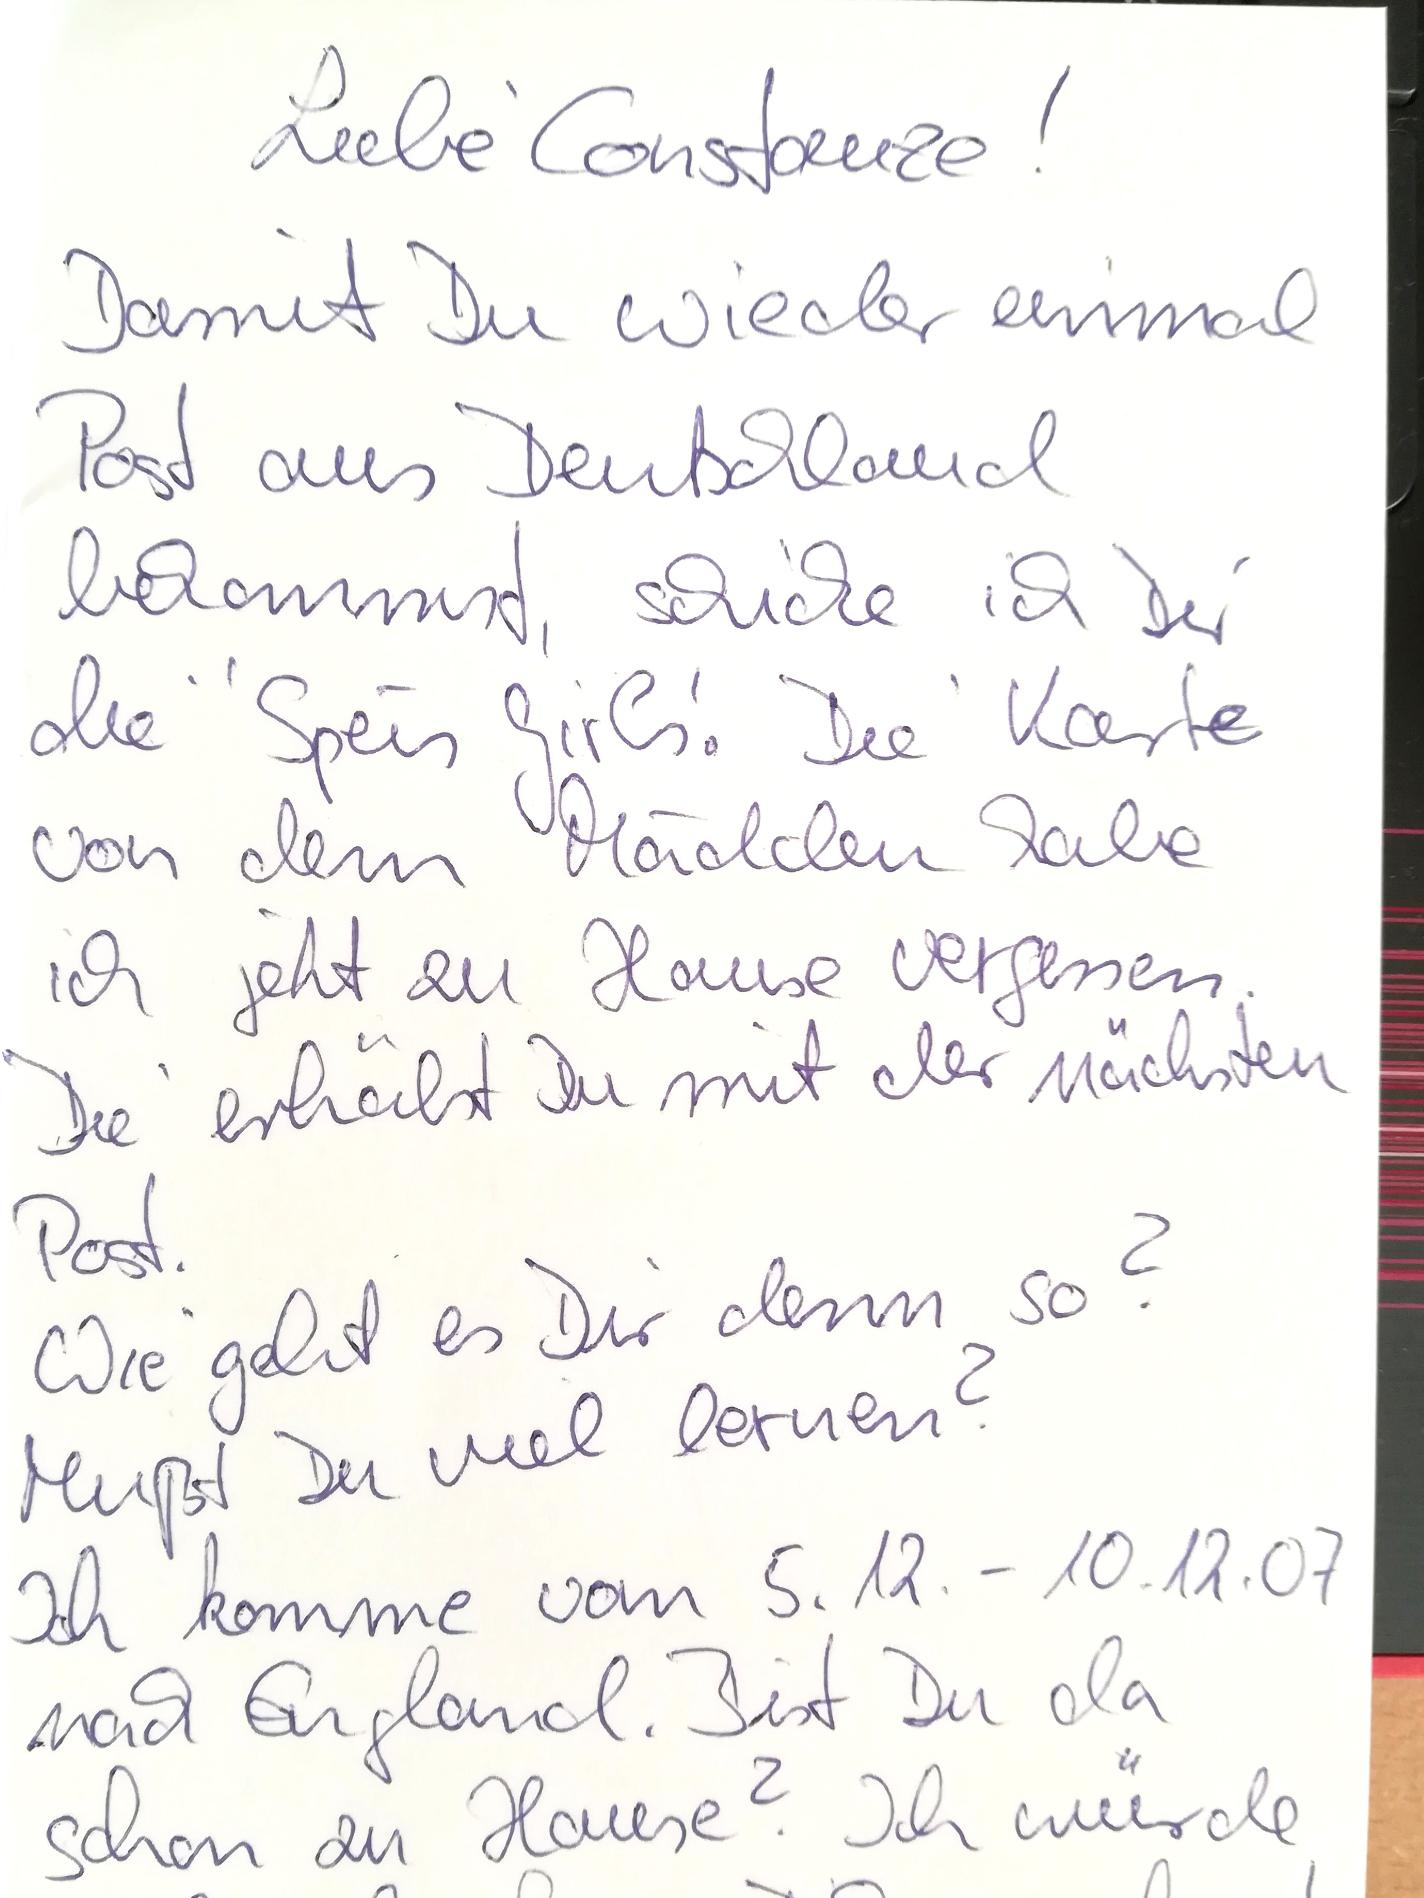 Liebe Constanze!
Damit Du wieder einmal
Post aus Deutschland
bekommst, schicke ich Dir
die "Speis Girls". Die Karte
von dem Mädchen habe
ich jetzt zu Hause vergessen.
Die erhälst Du mit der nächsten
Post.
Wie geht es Dir denn so?
Mußt Du viel lernen?
Ich komme vom 5.12. - 10.12.07
nach England. Bist Du da
schon zu Hause? Ich würde